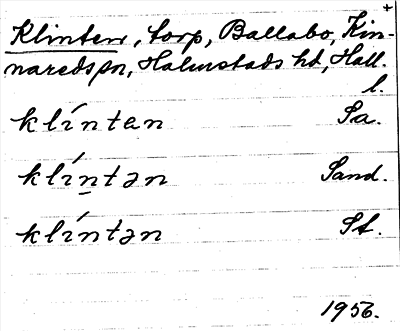 +
Klinten, torp, Ballabo, Kin-
nareds sn, Halmstads hd, Hall.
l.
klínten Sa.
klíntən Sand.
klíntən St.
1956.